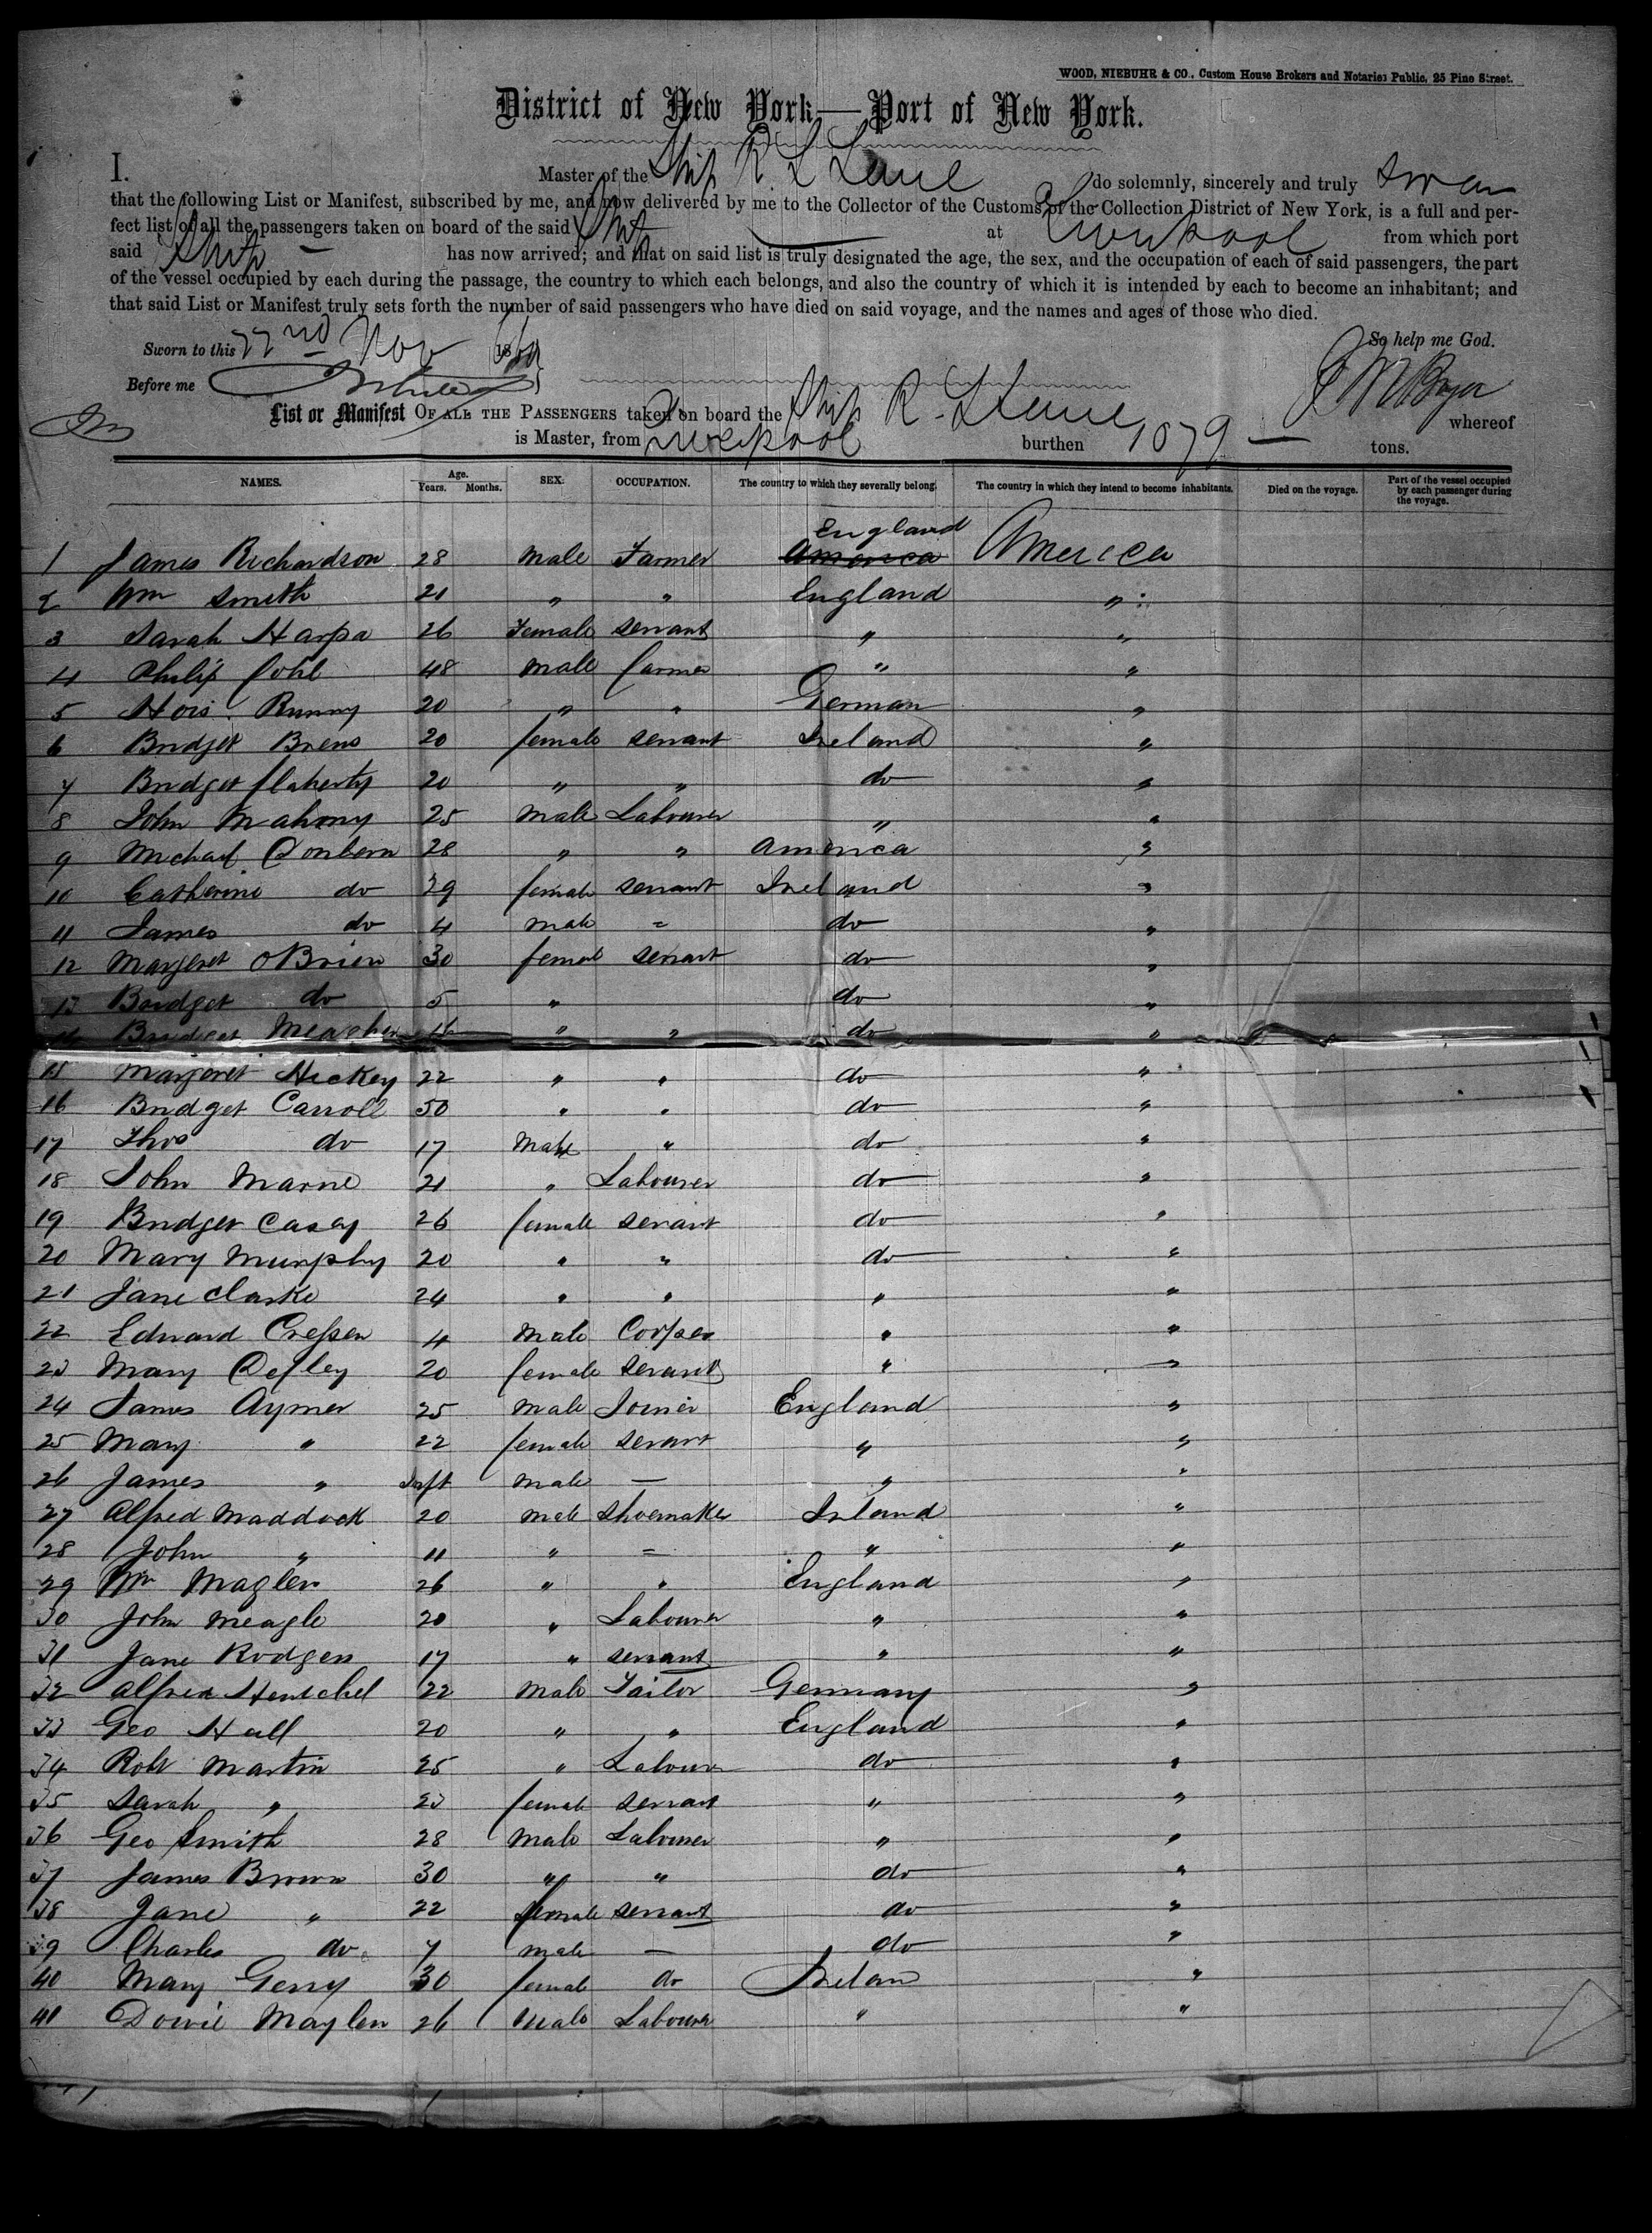 WOOD, NIEBUHR & CO., Custom House Brokers and Notaries Public, 25 Pine Street.
District of New York—Port of New York.
I. Master of the Ship R. L Lane do solemnly, sincerely and truly swear
that the following List or Manifest, subscribed by me, and now delivered by me to the Collector of the Customs of the Collection District of New York, is a full and per-
fect list of all the passengers taken on board of the said Ship at Liverpool from which port
said Ship has now arrived; and that on said list is truly designated the age, the sex, and the occupation of each of said passengers, the part
of the vessel occupied by each during the passage, the country to which each belongs, and also the country of which it is intended by each to become an inhabitant; and
that said List or Manifest truly sets forth the number of said passengers who have died on said voyage, and the names and ages of those who died.
Sworn to this 22nd Nov 18 So help me God.
Before me
List or Manifest OF ALL THE PASSENGERS taken on board the Ship R. L Lane whereof
is Master, from Liverpool burthen 1079 — tons.
NAMES. Age. Years. Months. SEX. OCCUPATION. The country to which they severally belong. The country in which they intend to become inhabitants. Died on the voyage. Part of the vessel occupied by each passenger during the voyage.
England
1 James Richardson 28 male Farmer America America
2 Wm Smith 21 " " England "
3 Sarah Harpa 26 Female servant " "
4 Philip 48 male farmer " "
5 20 " " German "
6 Bridget Brens 20 female servant Ireland "
7 Bridget flaherty 20 " " do "
8 John Mahony 25 male Labourer " "
9 Michael 28 " " America "
10 Catherine do 29 female servant Ireland "
11 James do 4 male = do "
12 Margeret OBrien 30 female servant do "
13 Bridget do 5 " do "
14 Bridget Meagher 16 " " do "
15 Margeret Hickey 22 " " do "
16 Bridget Carroll 50 " " do "
17 Thos do 17 male " do "
18 John Marne 21 " Labourer do "
19 Bridget Casey 26 female servant do "
20 Mary Murphy 20 " " do "
21 Jane Clarke 24 " " " "
22 Edward 4 male " "
23 Mary 20 female servant " "
24 James Aymer 25 male Joiner England "
25 Mary " 22 female servant " "
26 James " Inft male — " "
27 Alfred Maddock 20 male Shoemaker Irland "
28 John " 11 " = " "
29 Wm Maglen 26 " " England "
30 John Meagle 20 " Labourer " "
31 Jane Rodgers 17 " servant " "
32 Alfred Hentchel 22 male Tailor Germany "
33 Geo Hall 20 " " England "
34 Robt Martin 25 " Labourer do "
35 Sarah " 23 female servant " "
36 Geo Smith 28 male Labourer " "
37 James Brown 30 " " do "
38 Jane " 22 female servant do "
39 Charles do 7 male — do "
40 Mary Gerry 30 female do Irelan "
41 Maylen 26 male Labourer " "